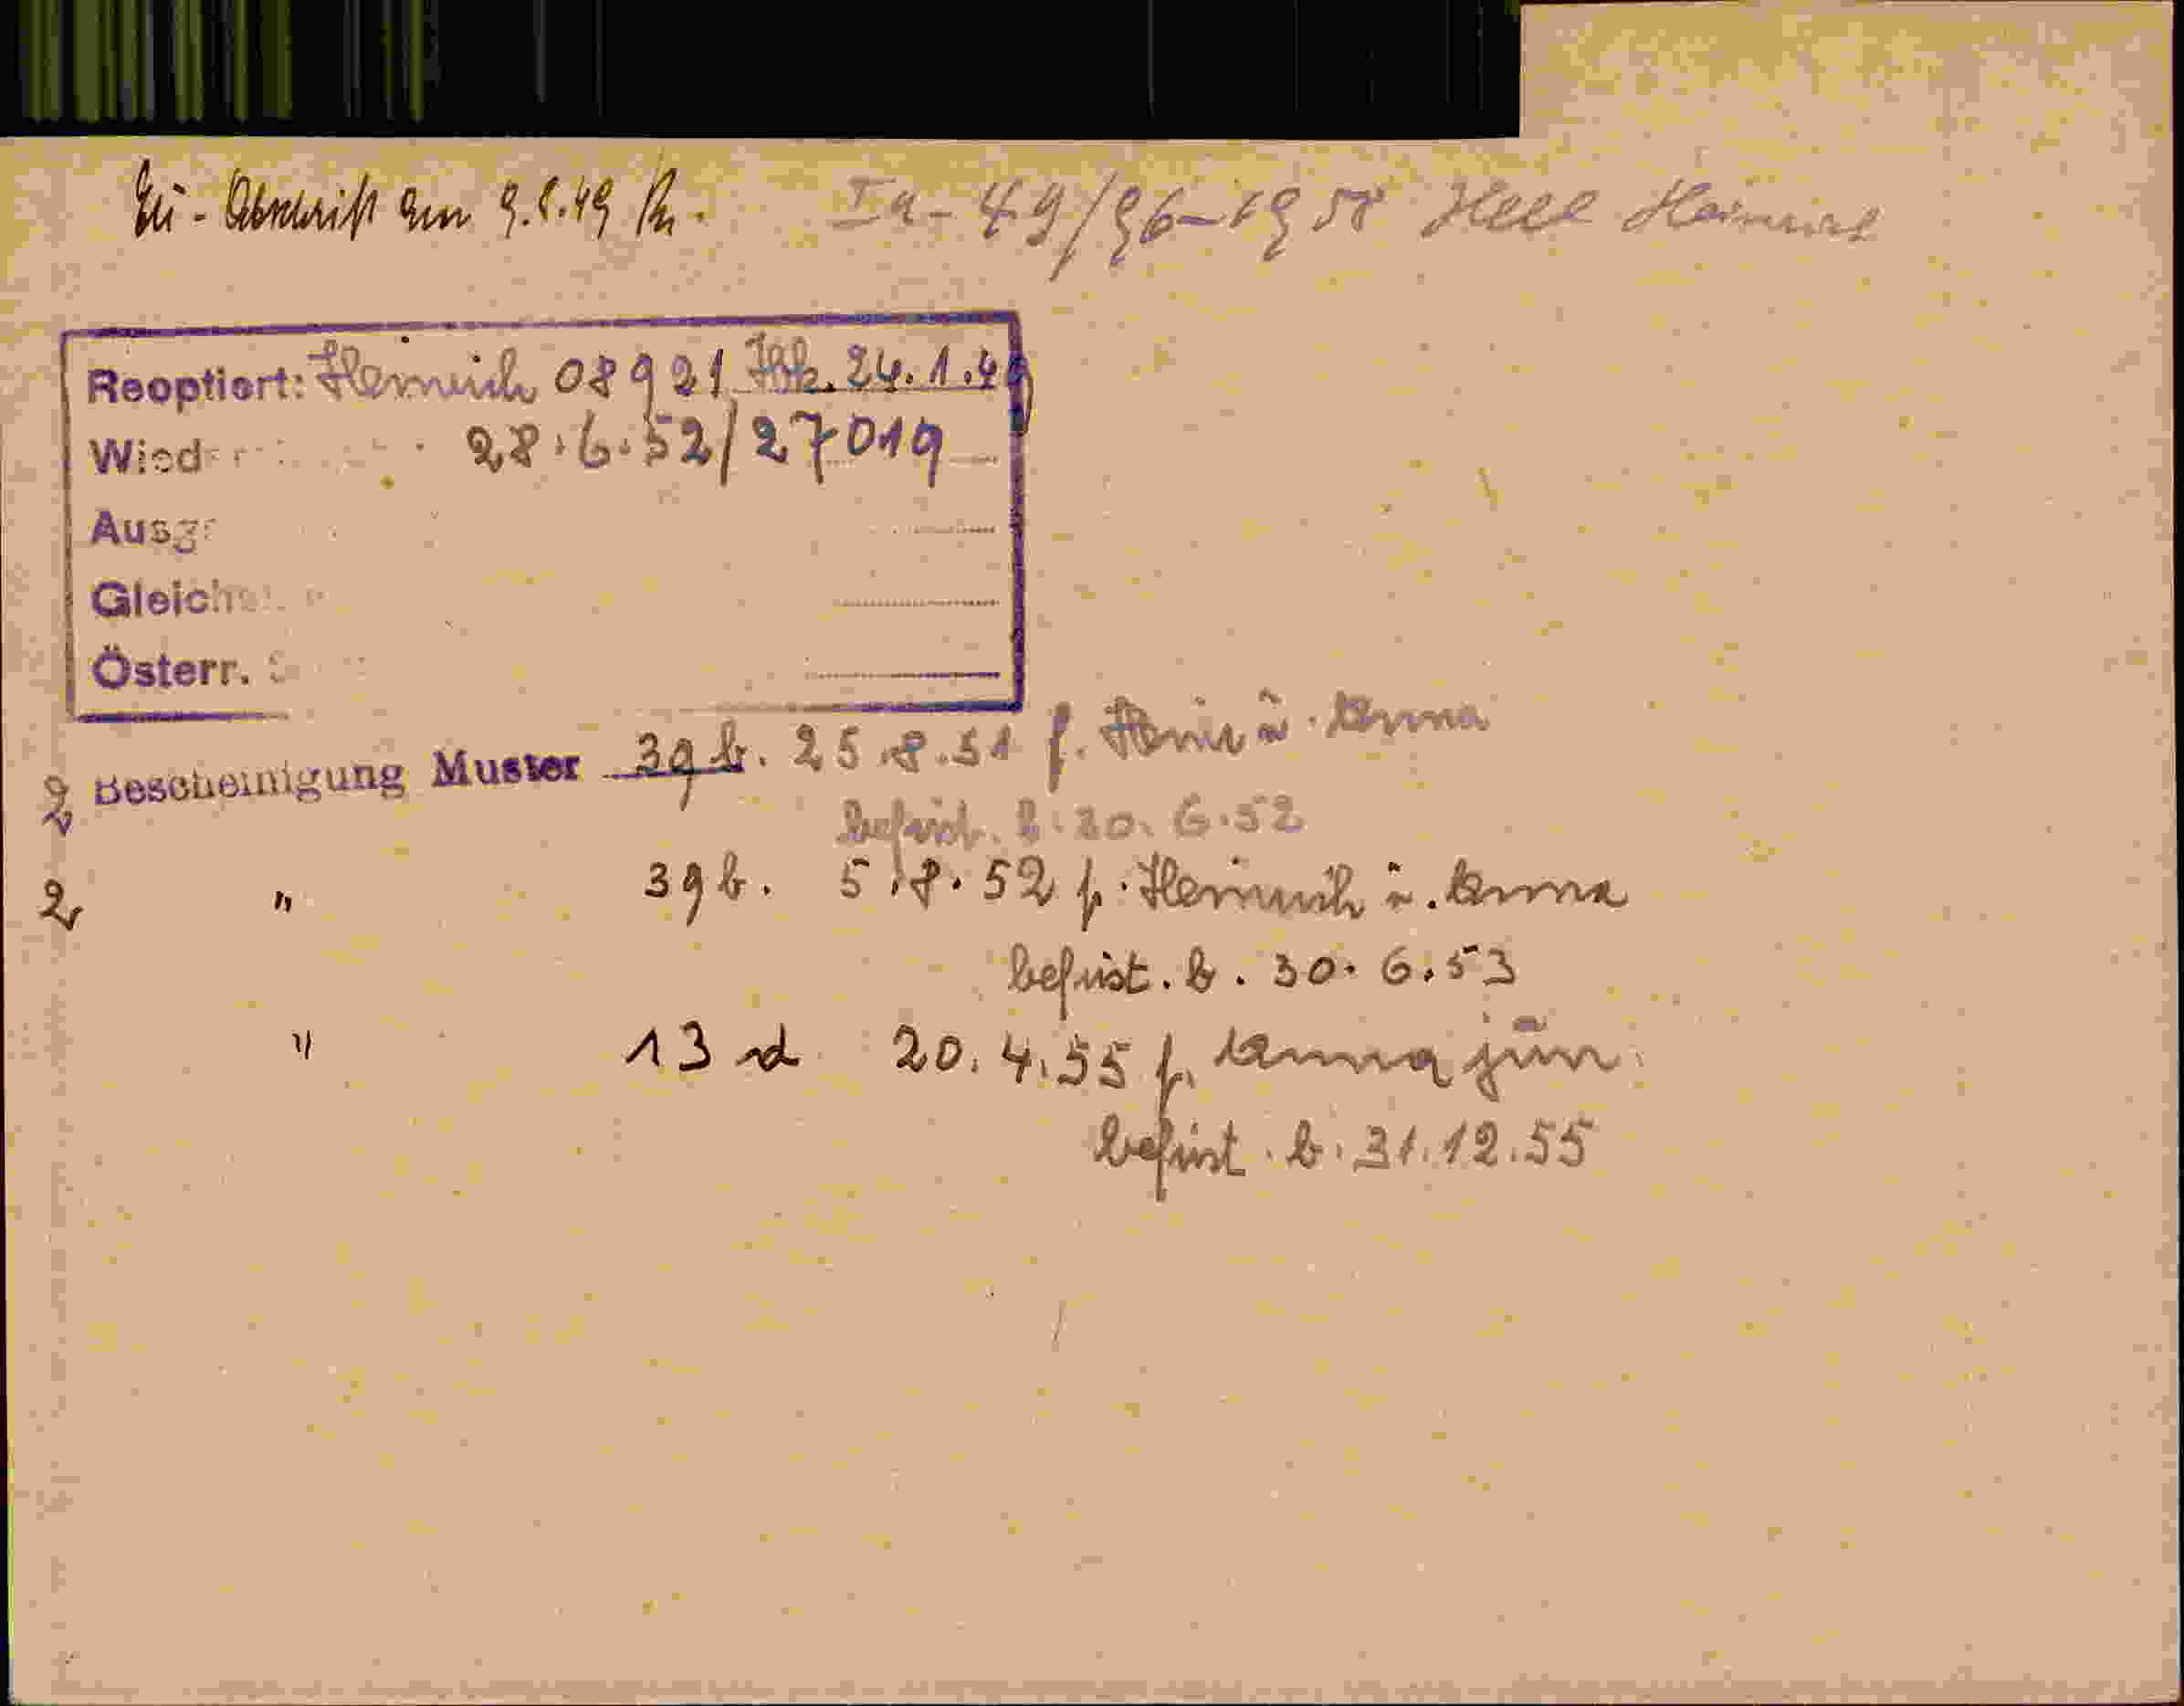 Abschrift am 9.8.49 Ia - 49/96-1958 Hell Heinrich
Reoptiert: Heinrich 08921 Ibk. 24.1.49
28.6.52/27019
Österr.
2 Bescheinigung Muster 39 b. 25.8.51 f. Heinr. u. Anna
befrist. b. 30. 6.52
2 " 39 b. 5.8.52 f. Heinrich u. Anna
befrist. b. 30. 6.53
" 13 d 20.4.55 f. Anna jun.
befrist. b. 31.12.55